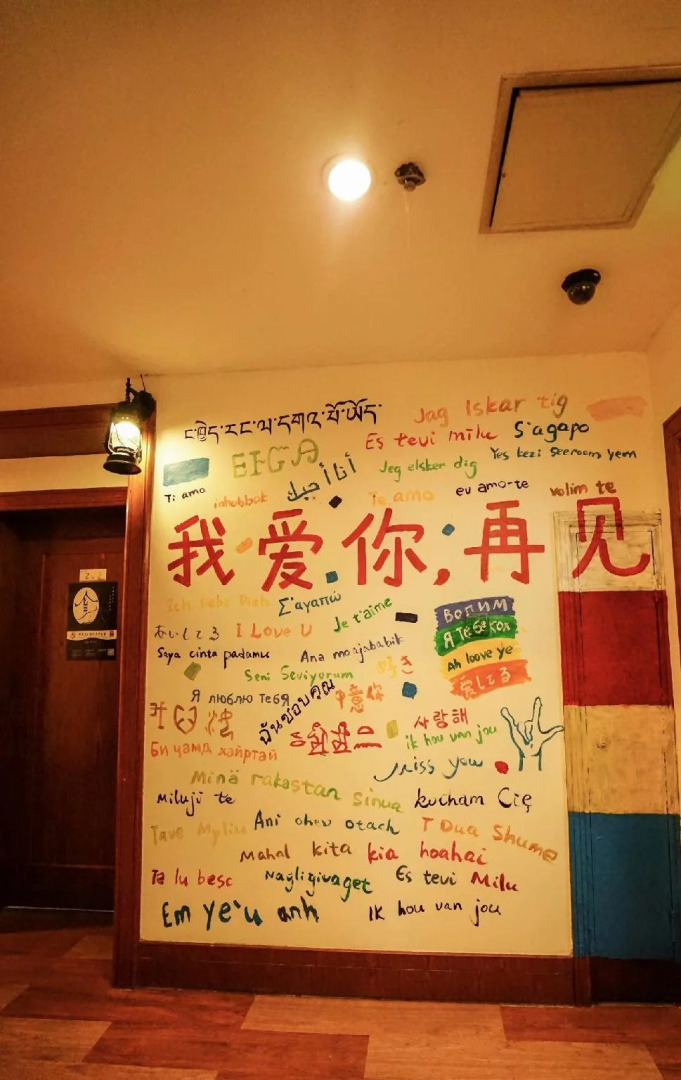 ང་ཁྱེད་རང་ལ་དགའ་པོ་ཡོད་
Jag Iskar tig
Es tevi milu
S'agapo
Yes kezi seeroom yem
Jeg elsker dig
أنا أحبك
Ti amo
inhobbok
Te amo
eu amo-te
volim te
我爱你,再见
Ich liebe Dich
Σ'αγαπώ
Je t'aime
ВОЛИМ
Я ТеБе кОХ
Ah loove ye
愛してる
あいしてる
I Love U
Saya cinta padamu
Ana moajababik
Seni Seviyorum
好き
Я люблю Тебя
ฉันชอบคุณ
中意你
사랑해
ik hou van jou
Би чамд хайртай
Miss you
Minä rakastan sinua
Miluji te
kocham Cię
Tave Myliu
Ani ohev otach
T Dua Shume
Mahal kita
kia hoahai
Te lu besc
Nagligivaget
Es tevi Milu
Em ye'u anh
Ik hou van jou